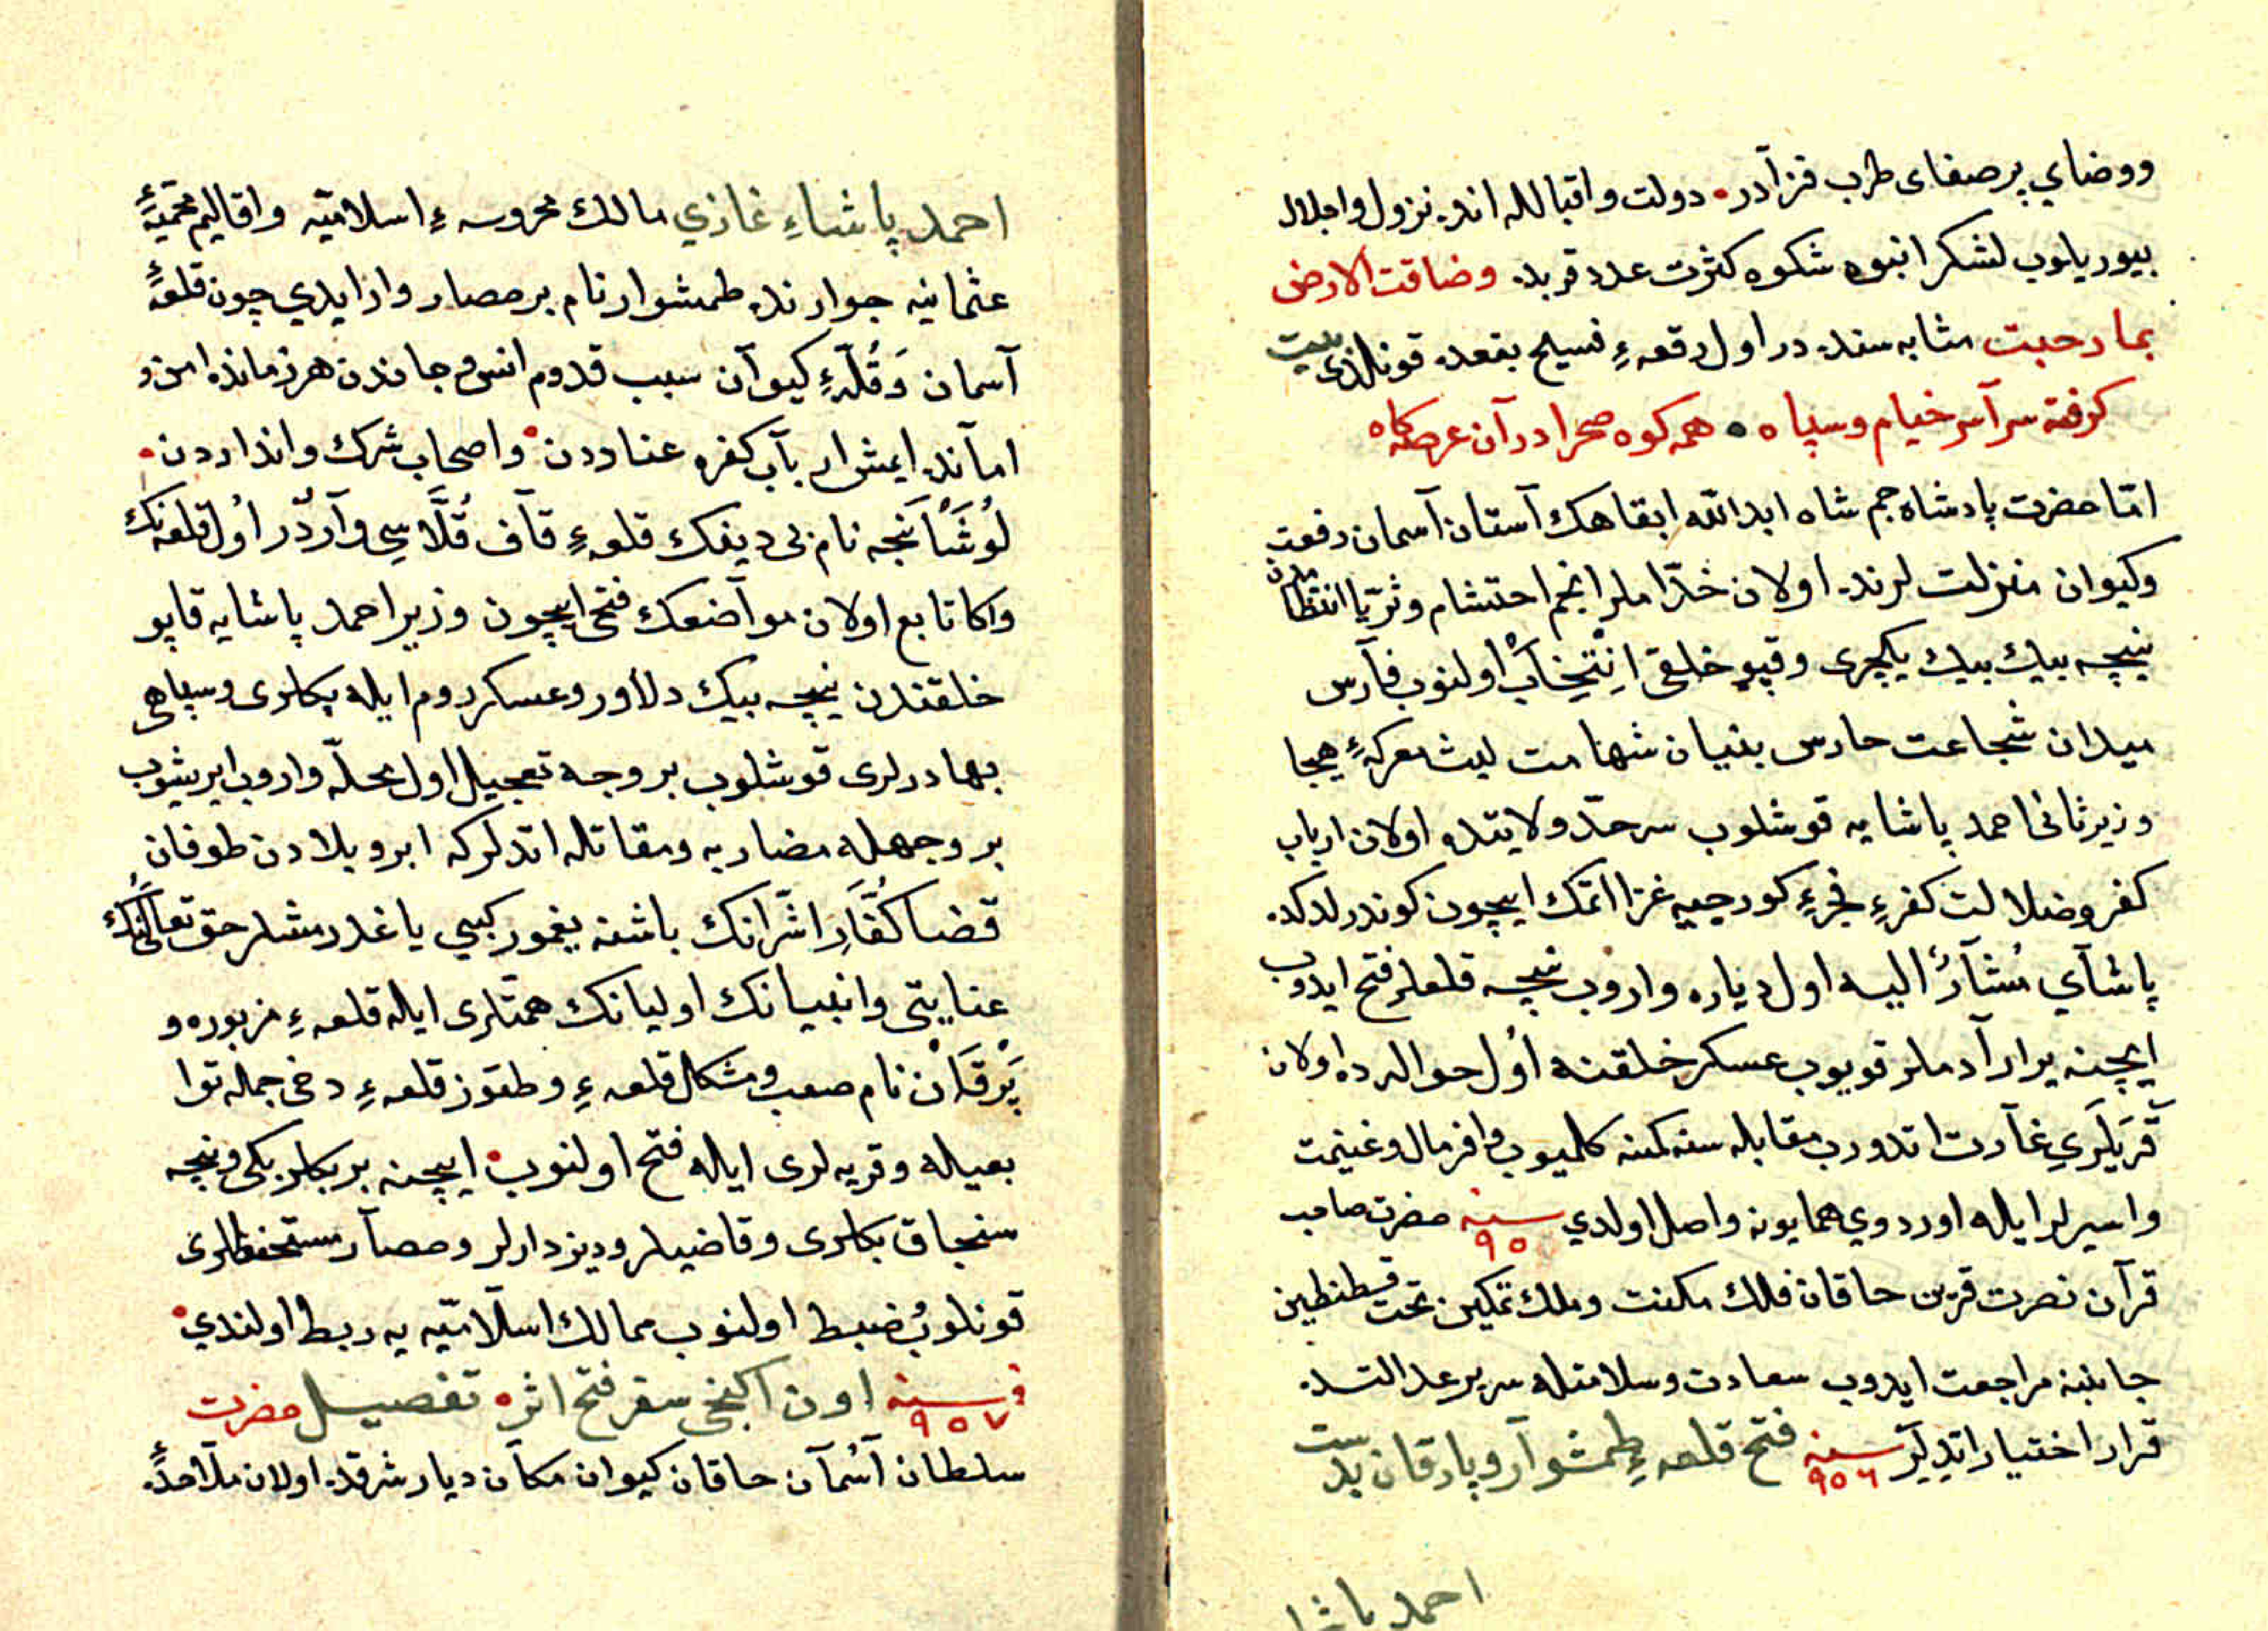 ووضاي پر صفاى طرب فزآدر • دولت واقباللە اندە نزول واجلال
بيوريلوب لشكر انبوه شكوه كثرت عدد قربدە وضاقت الارض
بما رحبت مثابه سندە در اول رقعهٔ فسيح بقعدە قونالدى بيت
كرفته سرآسر خيام وسپاه • همه كوه صحرا در آن عرصه كاه
امّا حضرت پادشاه جم شاه ابد اللّه ابقاهك آستان آسمان رفعت
وكيوان منزلت لرندە اولان خدّاملر انجم احتشام وثريّا انتظاملردن
نيچه بيك بيك يكيچرى وقپو خلقى اِنْتِخَابْ اولنوب فآرس
ميدان شجاعت حارس بنيان شهامت ليث معركهٔ هيجا
وزير ثانى احمد پاشايه قوشلوب سرحدّ ولايتدە اولان ارباب
كفر وضلالت كفرهٔ فجرهٔ كورجييه غزا اتمك ايچون كوندرلدكدە
پاشآي مُشآرٌ اليه اول ديارە واروب نيچه قلعلر فتح ايدوب
ايچنه يرار آدملر قويوب عسكر خلقنه اوُل حوالردە اولان
قَريَلَرِي غآرت اتدورب مقابله سنه كمسنه كلميوب وافر مال وغنيمت
واسيرلر ايله اوردوي همايونه واصل اولدي سنه ٩٥ حضرت صاحب
قرآن نصرت قرين حاقان فلك مكنت وملك تمكين تحت قسطنطين
جانبنه مراجعت ايدوب سعادت وسلامتله سرير عدالتدە
قرار اختيار اتديلَر سنه ٩٥٦ فتح قلعهٔ طمشوآر وپارقان بدست
احمد پاشا
احمد پاشاءِ غازي ممالك محروسهٔ اسلاميّه واقاليم محميّهٔ
عثمانيه جوارندە طمشوار نام بر حصار وار ايدي چون قلعهٔ
آسمان وَقُلّهٔ كيوآن سبب قدوم انس وجاندن هر زماندە امن و
امآندە ايمش ارباب كفره عناددن • واصحاب شرك واندادردن •
لوُشَانْجه نام بى ديفك قلعهٔ قآف قُلَّاسِي وآردُر اوُل قلعه‌نك
واكا تابع اولان موآضعك فتحى ايچون وزير احمد پاشايه قاپو
خلقندن نيچه بيك دلاور وعسكر روم ايله بكلرى وسپاهى
بهادرلرى قوشلوب بر وجه تعجيل اول محلّه واروب ايريشوب
بر وجهله مضاربه ومقاتله اتدلر كه ابر وبلادن طوفان
قضا كُفَّارِ اشرَانك باشنه يغمور كبي ياغدرمشلر حق تعالى‌نُك
عنايتى وانبيانك اوليانك همتلرى ايله قلعهٔ مزبوره و
بَرقَانْ نام صعب ومشكل قلعهٔ وطقوز قلعهٔ دخى جمله توا
بعيله وقريه لرى ايله فتح اولنوب • ايچنه بر بكلربكى ونيجه
سنجاق بكلرى وقاضيلر ودزدارلر وحصآر مستحفظلرى
قونلوبُ ضبط اولنوب ممالك اسلاميّه يه ربط اولندي •
فى سنه ٩٥٧ اون اكنجى سفر فتح اثره تفصيل حضرت
سلطان آسُمآن حاقان كيوان مكآن ديار شرقدە اولان ملآحدهٔ